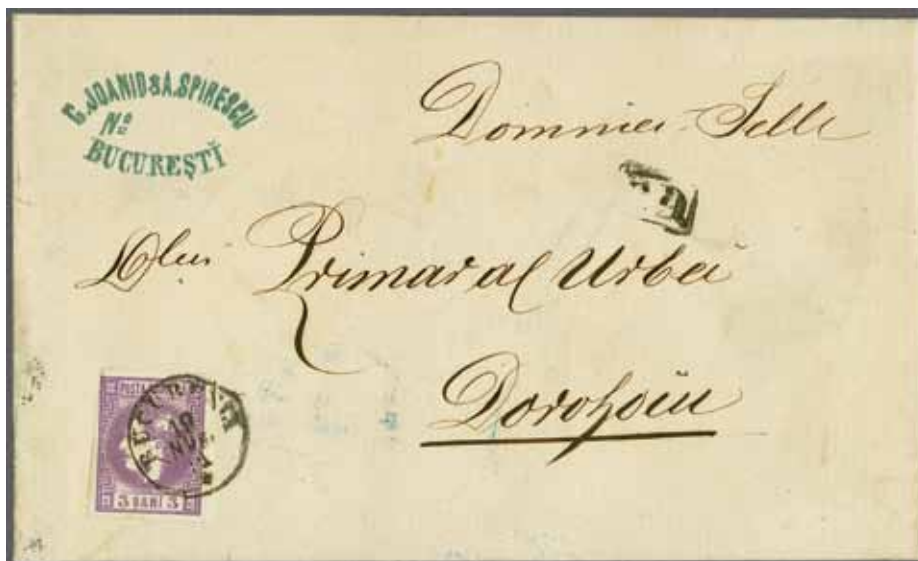 C. JOANID & A. SPIRESCU
Nº
BUCURESȚĬ
Domniei-Selle
Dlui Primar al Urbei
Dorohoiu
POSTA
BUCURESCI
19
NOE.
5 BANI 5